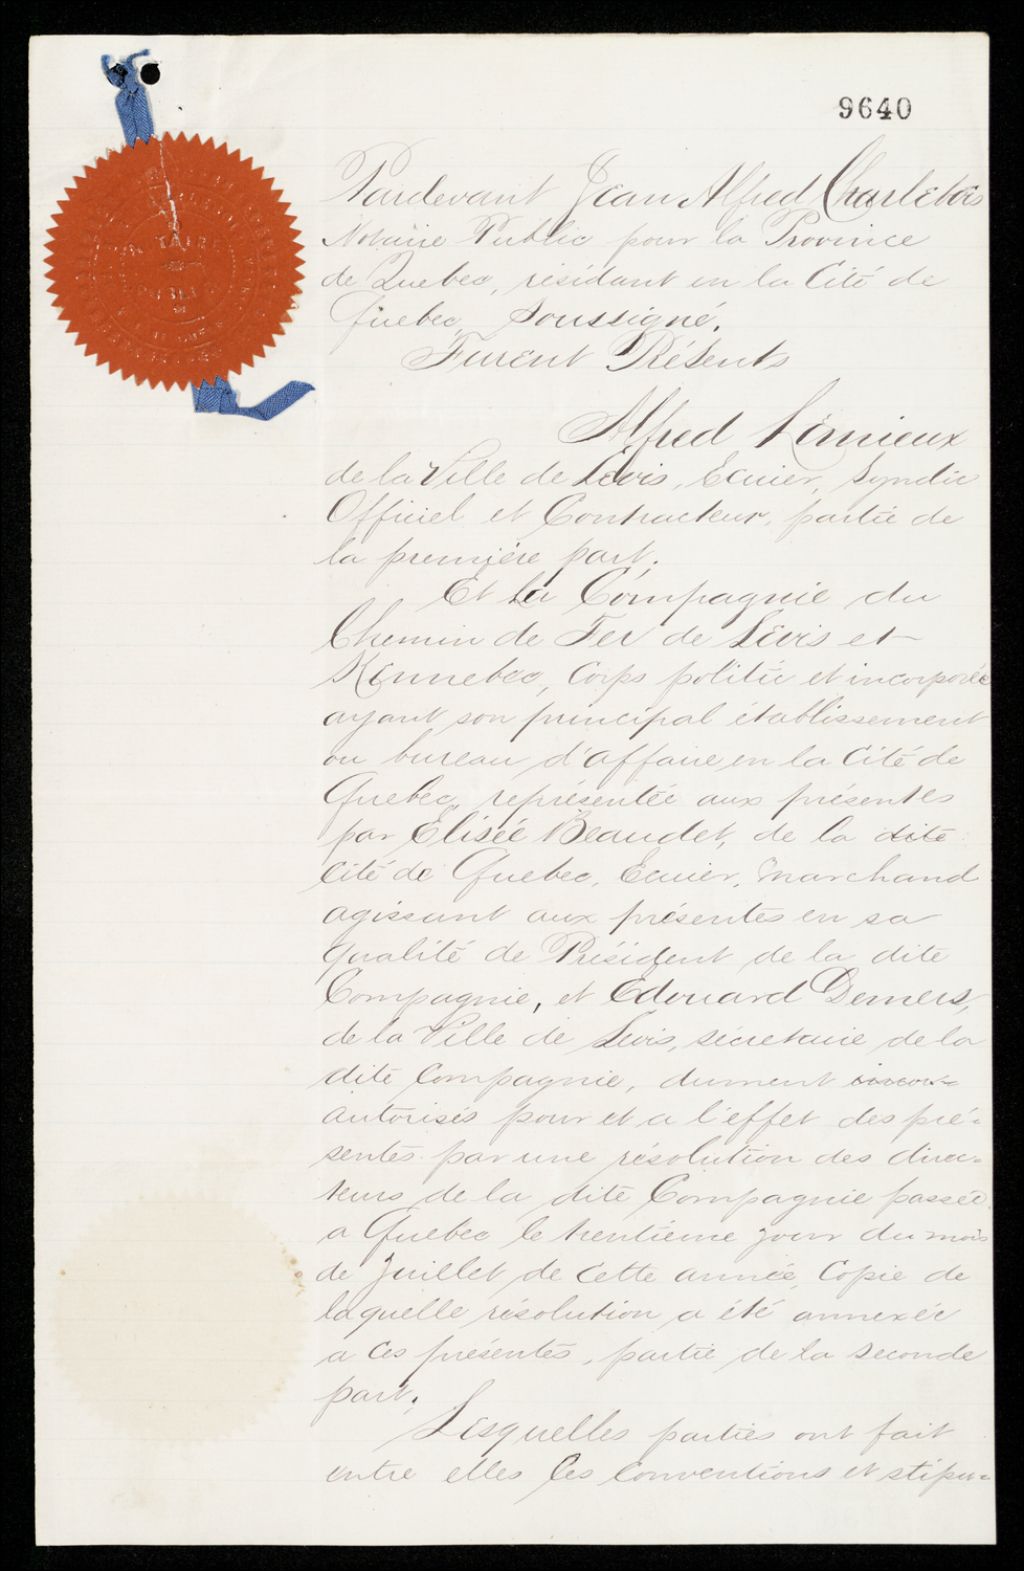 9640
Pardevant Jean Alfred Charlebois
Notaire Public pour la Province
de Quebec, résidant en la Cité de
Quebec, Soussigné.
Furent Présents
Alfred Lémieux
de la Ville de Lévis, Ecuier, Syndic
Officiel et Contracteur, partie de
la première part.
Et la Compagnie du
Chemin de Fer de Lévis et
Kennebec, Corps politic et incorporée
ayant son principal établissement
ou bureau d'affaire en la Cité de
Quebec, représentée aux présentes
par Elisée Beaudet, de la dite
Cité de Quebec, Ecuier, Marchand
agissant aux présentes en sa
qualité de Président de la dite
Compagnie, et Edouard Demers,
de la Ville de Levis, sécretaire de la
dite Compagnie, dument
autorisés pour et a l'effet des pré-
sentes par une résolution des direc-
teurs de la dite Compagnie passée
a Quebec le trentième jour du mois
de Juillet de cette année, Copie de
laquelle résolution a été annexée
a ces présentes, partie de la seconde
part.
Lesquelles parties ont fait
entre elles les conventions et stipu-
NOTAIRE
PUBLIC